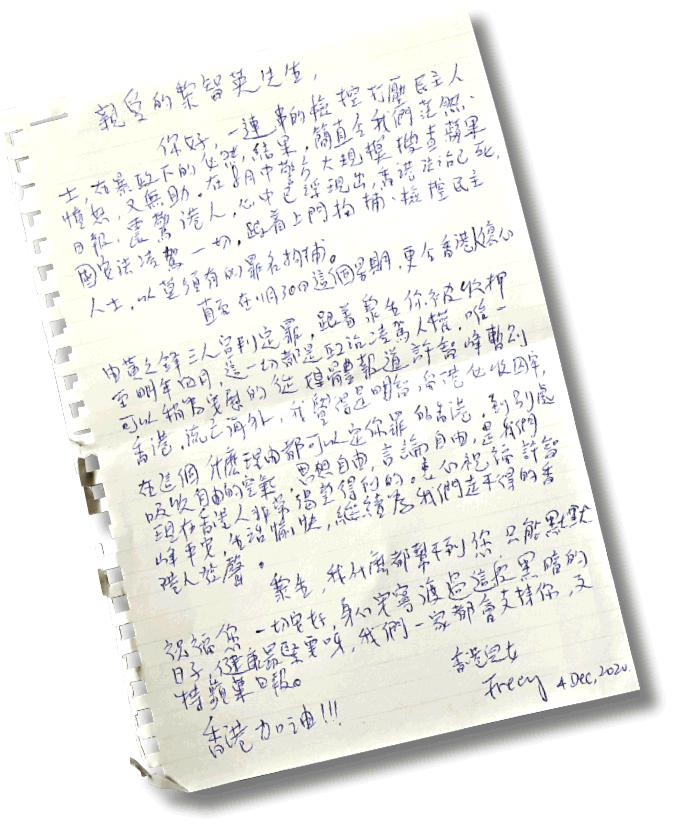 親愛的黎智英先生，
你好，一連串的檢控打壓民主人
士，在暴政下的必然結果，簡直令我們茫然、
憤怒，又無助。在8月中警方大規模搜查蘋果
日報，震驚港人，心中已浮現出，香港法治已死，
國安法凌駕一切，跟着上門拘捕、檢控民主
人士，以莫須有的罪名拘捕。
直至在11月30日這個星期，更令香港人傷心
由黃之鋒三人宮判定罪，跟着黎生你被收押
至明年四月，這一切都是政治凌駕人權，唯一
可以稱為安慰的從媒體報道許智峰暫別
香港，流亡海外，我覺得是明智，香港也收窄，
在這個什麼理由都可以定你罪的香港，到別處
吸收自由的空氣，思想自由，言論自由，是我們
現在香港人非常渴望得到的。衷心祝福許智
峰平安，生活愉快，繼續為我們走不得的香
港人發聲。
黎生，我什麼都幫不到您，只能默默
祝福您一切安好，身心安寧渡過這段黑暗的
日子，健康最緊要呀，我們一家都會支持你，支
持蘋果日報。
香港兒女
4 Dec, 2020
香港加油!!!